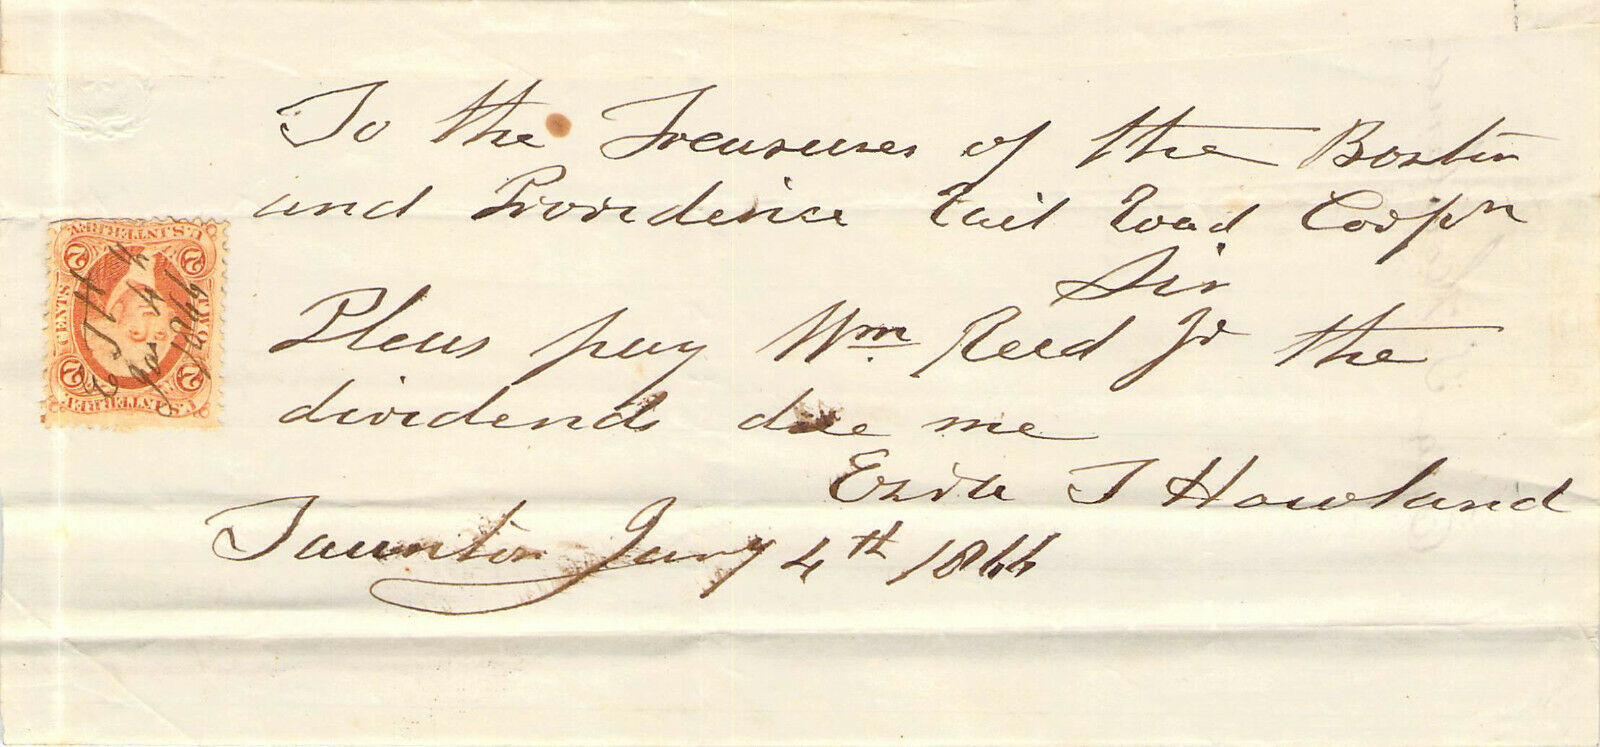 To the Treasurer of the Boston
and Providence Rail Road Corpn
Sir
Pleas pay Wm Reed Jr the
dividends due me
T Howland
Taunton Jany 4th 1866
U.S. INTER. REV.
TWO
CENTS
2
2
2
2
U.S. INTER. REV.
T H
Jan 4th
1866